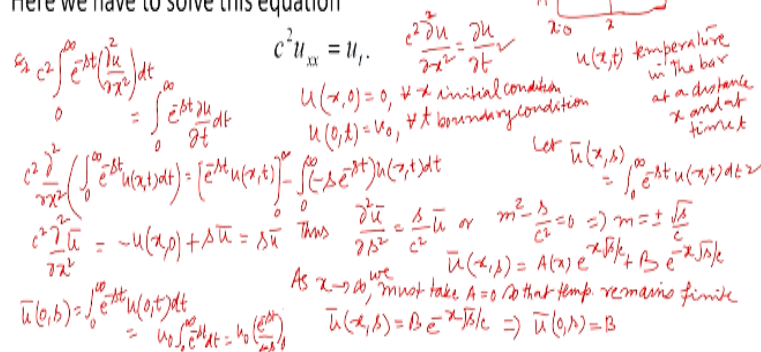 Here we have to solve this equation
c²u_xx = u_t.
c² ∂²u/∂x² = ∂u/∂t
x=0 x
u(x,t) temperature in the bar at a distance x and at time t
c² ∫₀^∞ e^{-st} (∂²u/∂x²) dt
= ∫₀^∞ e^{-st} ∂u/∂t dt
u(x,0) = 0, ∀ x initial condition
u(0,t) = u₀, ∀ t boundary condition
Let ū(x,s) = ∫₀^∞ e^{-st} u(x,t) dt
c² ∂²/∂x² (∫₀^∞ e^{-st} u(x,t) dt) = [e^{-st} u(x,t)]₀^∞ - ∫₀^∞ (-s e^{-st}) u(x,t) dt
c² ∂²ū/∂x² = -u(x,0) + sū = sū Thus ∂²ū/∂s² = s/c² ū or m² - s/c² = 0 => m = ± √s/c
ū(x,s) = A(x) e^{x√s/c} + B e^{-x√s/c}
As x→∞, we must take A=0 so that temp. remains finite
ū(0,s) = ∫₀^∞ e^{-st} u(0,t) dt
= u₀ ∫₀^∞ e^{-st} dt = u₀ (e^{-st}/-s)₀
ū(x,s) = B e^{-x√s/c} => ū(0,s) = B